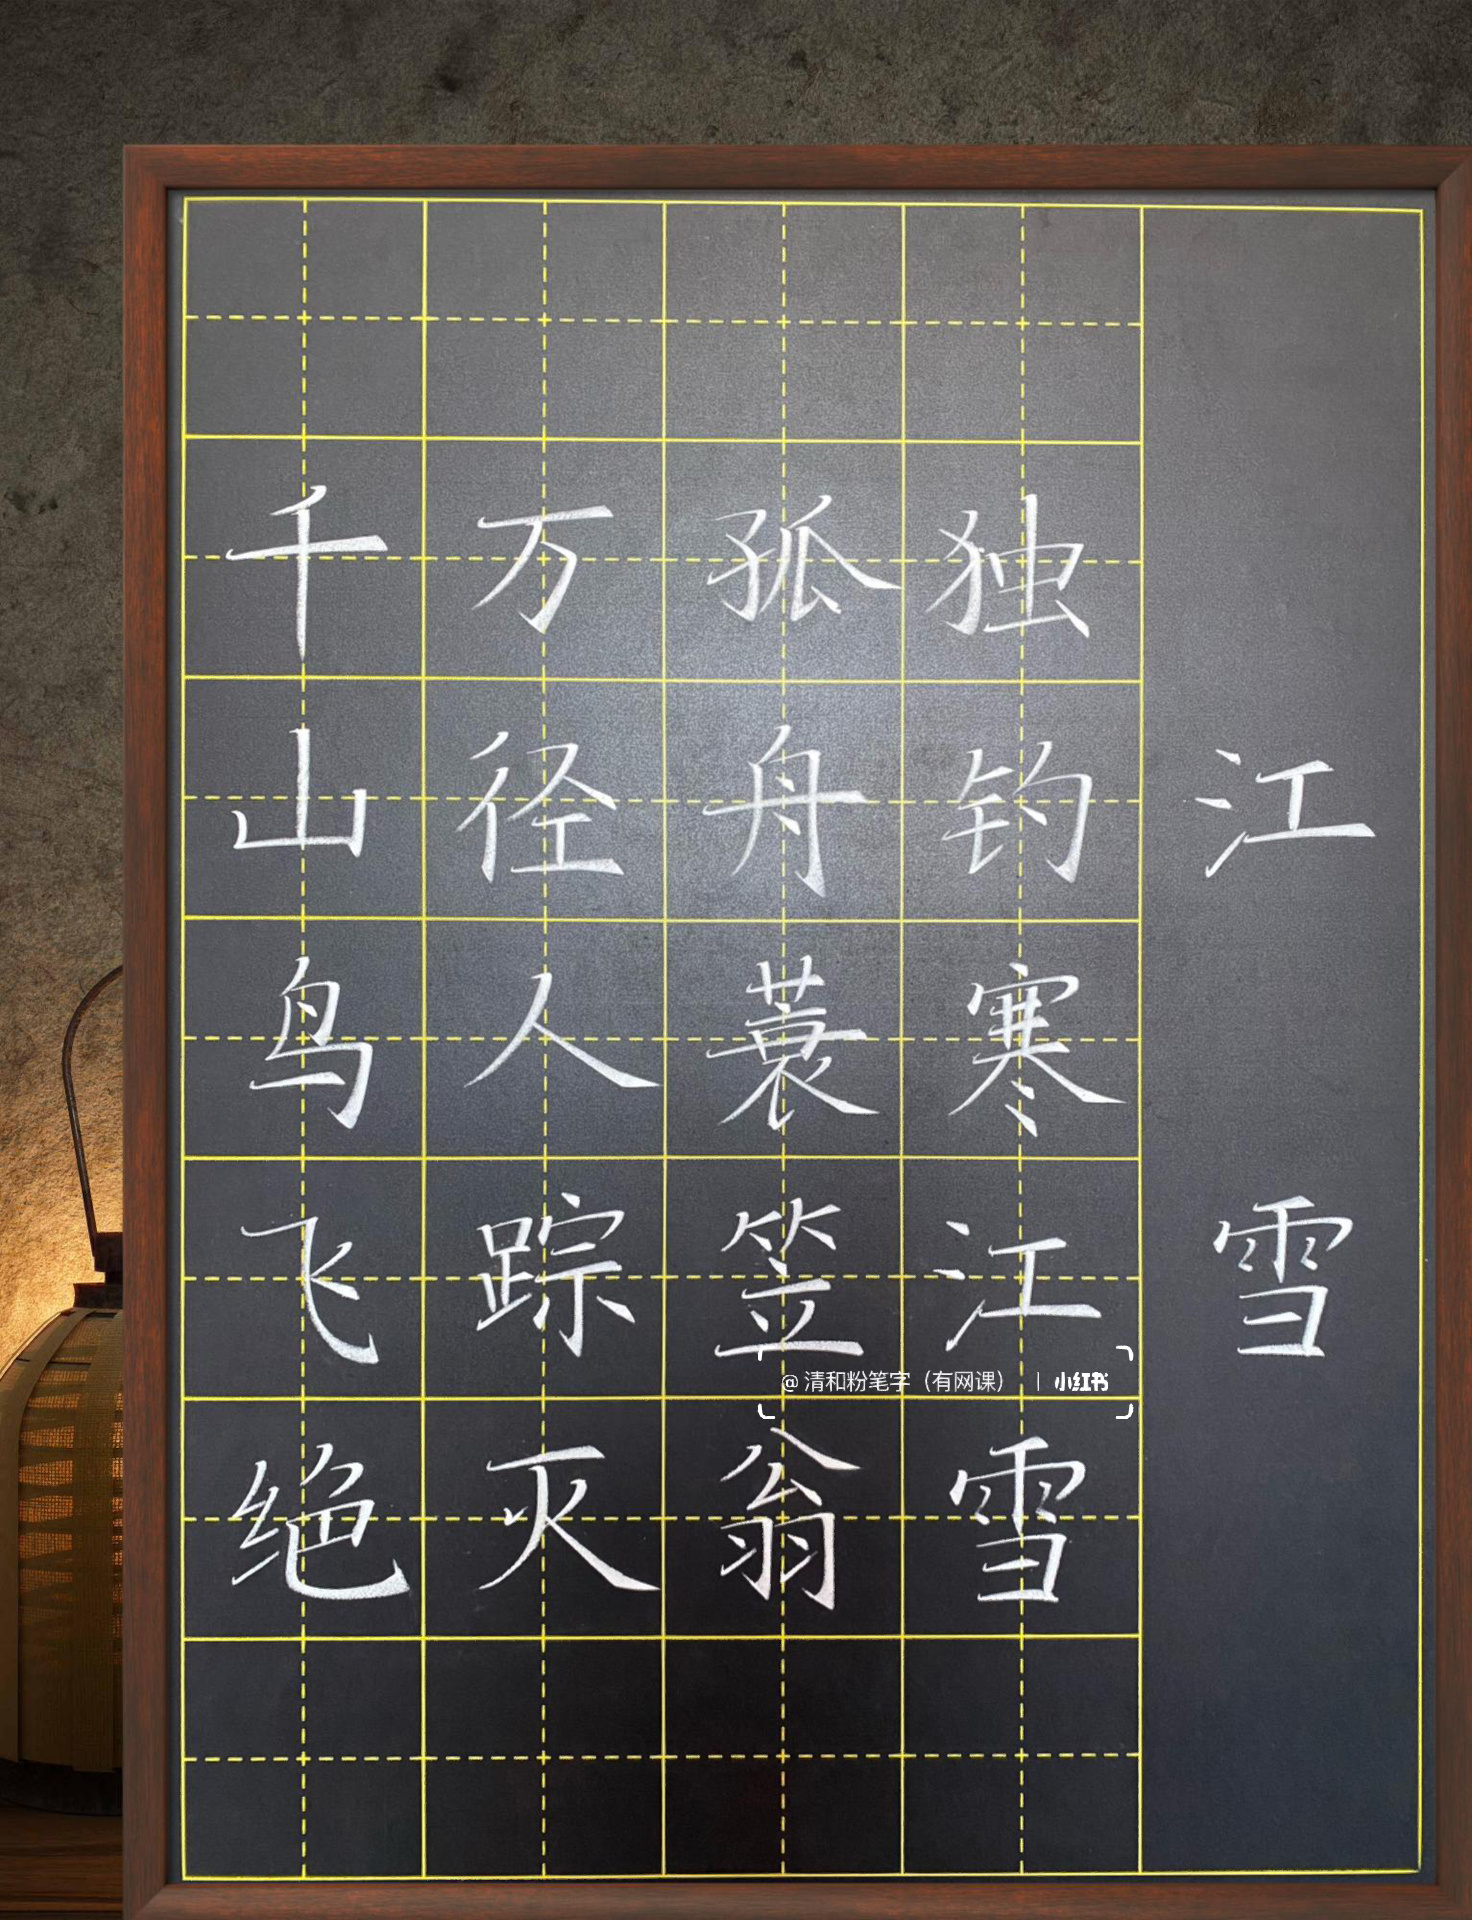 江雪
千山鸟飞绝
万径人踪灭
孤舟蓑笠翁
独钓寒江雪
@清和粉笔字（有网课）｜小红书